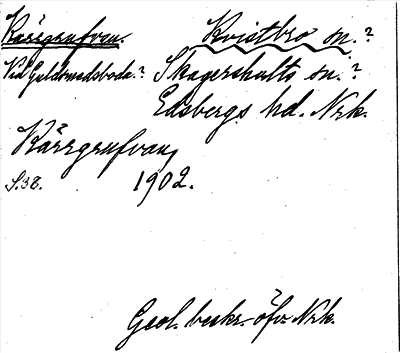 Kärrgrufvan. Kvistbro sn.?
Vid Guldsmedsboda.? Skagershults sn.?
Edsbergs hd. Nrk.
Kärrgrufvan,
S. 38. 1902.
Geol. beskr. öfv Nrk.